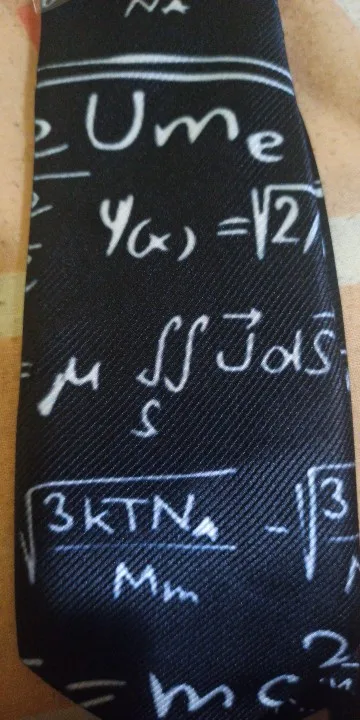 N_A
U m_e
y(x) = √2
= μ ∬_S J⃗ dS⃗
√(3kTN_A / M_m) - √(3
= mc²